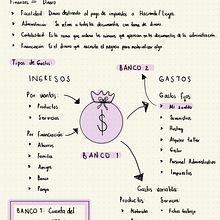 Finanzas = Dinero
Fiscalidad: Dinero destinado al pago de impuestos a Hacienda/Seguro.
Administración: Se refiere a todos los documentos con tema de dinero.
Contabilidad: Es la rama que ordena los números que aparecen en los documentos de la administración.
Financiación: Es el dinero que necesita el negocio para materializar algo.
Tipos de Gastos
BANCO 2
INGRESOS
GASTOS
Por ventas:
Productos
Servicios
Por financiación:
Ahorros
Familia
Amigos
Banco
Pareja
$
BANCO 1
Gastos fijos
Mi sueldo
Suministros
Hosting
Alquiler taller
Gestor
Personal Administrativo
Impuestos
Gastos variables:
Productos
Materiales
Servicios:
Horas trabajo
BANCO 1: Cuenta del